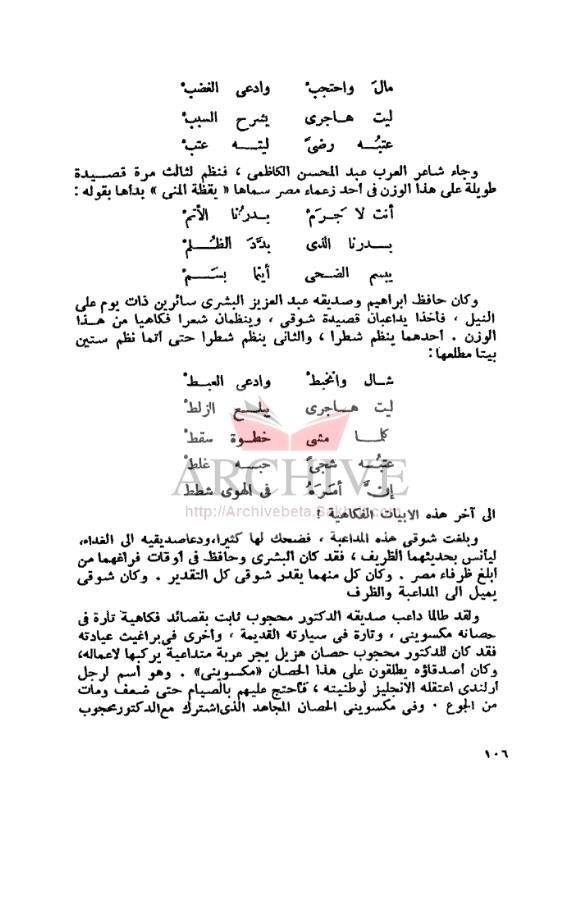 مال واحتجبْ وادعى الغضبْ
ليت هاجرى يشرح السببْ
عتبُه رضىً ليته عتبْ
وجاء شاعر العرب عبد المحسن الكاظمى ، فنظم لثالث مرة قصيدة
طويلة على هذا الوزن فى أحد زعماء مصر سماها « يقظة المنى » بدأها بقوله :
أنت لا جَرَمْ بدرُنا الأتمْ
بدرنا الذى بدَّدَ الظُلمْ
يبسم الضحى أينما بسَمْ
وكان حافظ ابراهيم وصديقه عبد العزيز البشرى سائرين ذات يوم على
النيل ، فأخذا يداعبان قصيدة شوقى ، وينظمان شعرا فكاهيا من هذا
الوزن . أحدهما ينظم شطرا ، والثانى ينظم شطرا حتى أتما نظم ستين
بيتا مطلعها :
شال وانخبطْ وادعى العبطْ
ليت هاجرى يبلع الزلطْ
كلما مشى خطوة سقطْ
عتبُه شجىً حبه غلطْ
إنَّ أمرَهُ فى الهوى شطط
ARCHIVE
الى آخر هذه الابيات الفكاهية !
وبلغت شوقى هذه المداعبة ، فضحك لها كثيرا،ودعاصديقيه الى الغداء،
ليأنس بحديثهما الظريف ، فقد كان البشرى وحافظ فى أوقات فراغهما من
أبلغ ظرفاء مصر . وكان كل منهما يقدر شوقى كل التقدير . وكان شوقى
يميل الى المداعبة والظرف
ولقد طالما داعب صديقه الدكتور محجوب ثابت بقصائد فكاهية تارة فى
حصانه مكسوينى ، وتارة فى سيارته القديمة ، وأخرى فى براغيث عيادته
فقد كان للدكتور محجوب حصان هزيل يجر عربة متداعية يركبها لاعماله،
وكان أصدقاؤه يطلقون على هذا الحصان «مكسوينى» . وهو أسم لرجل
أرلندى اعتقله الانجليز لوطنيته ، فأحتج عليهم بالصيام حتى ضعف ومات
من الجوع . وفى مكسوينى الحصان المجاهد الذى اشترك مع الدكتور محجوب
١٠٦